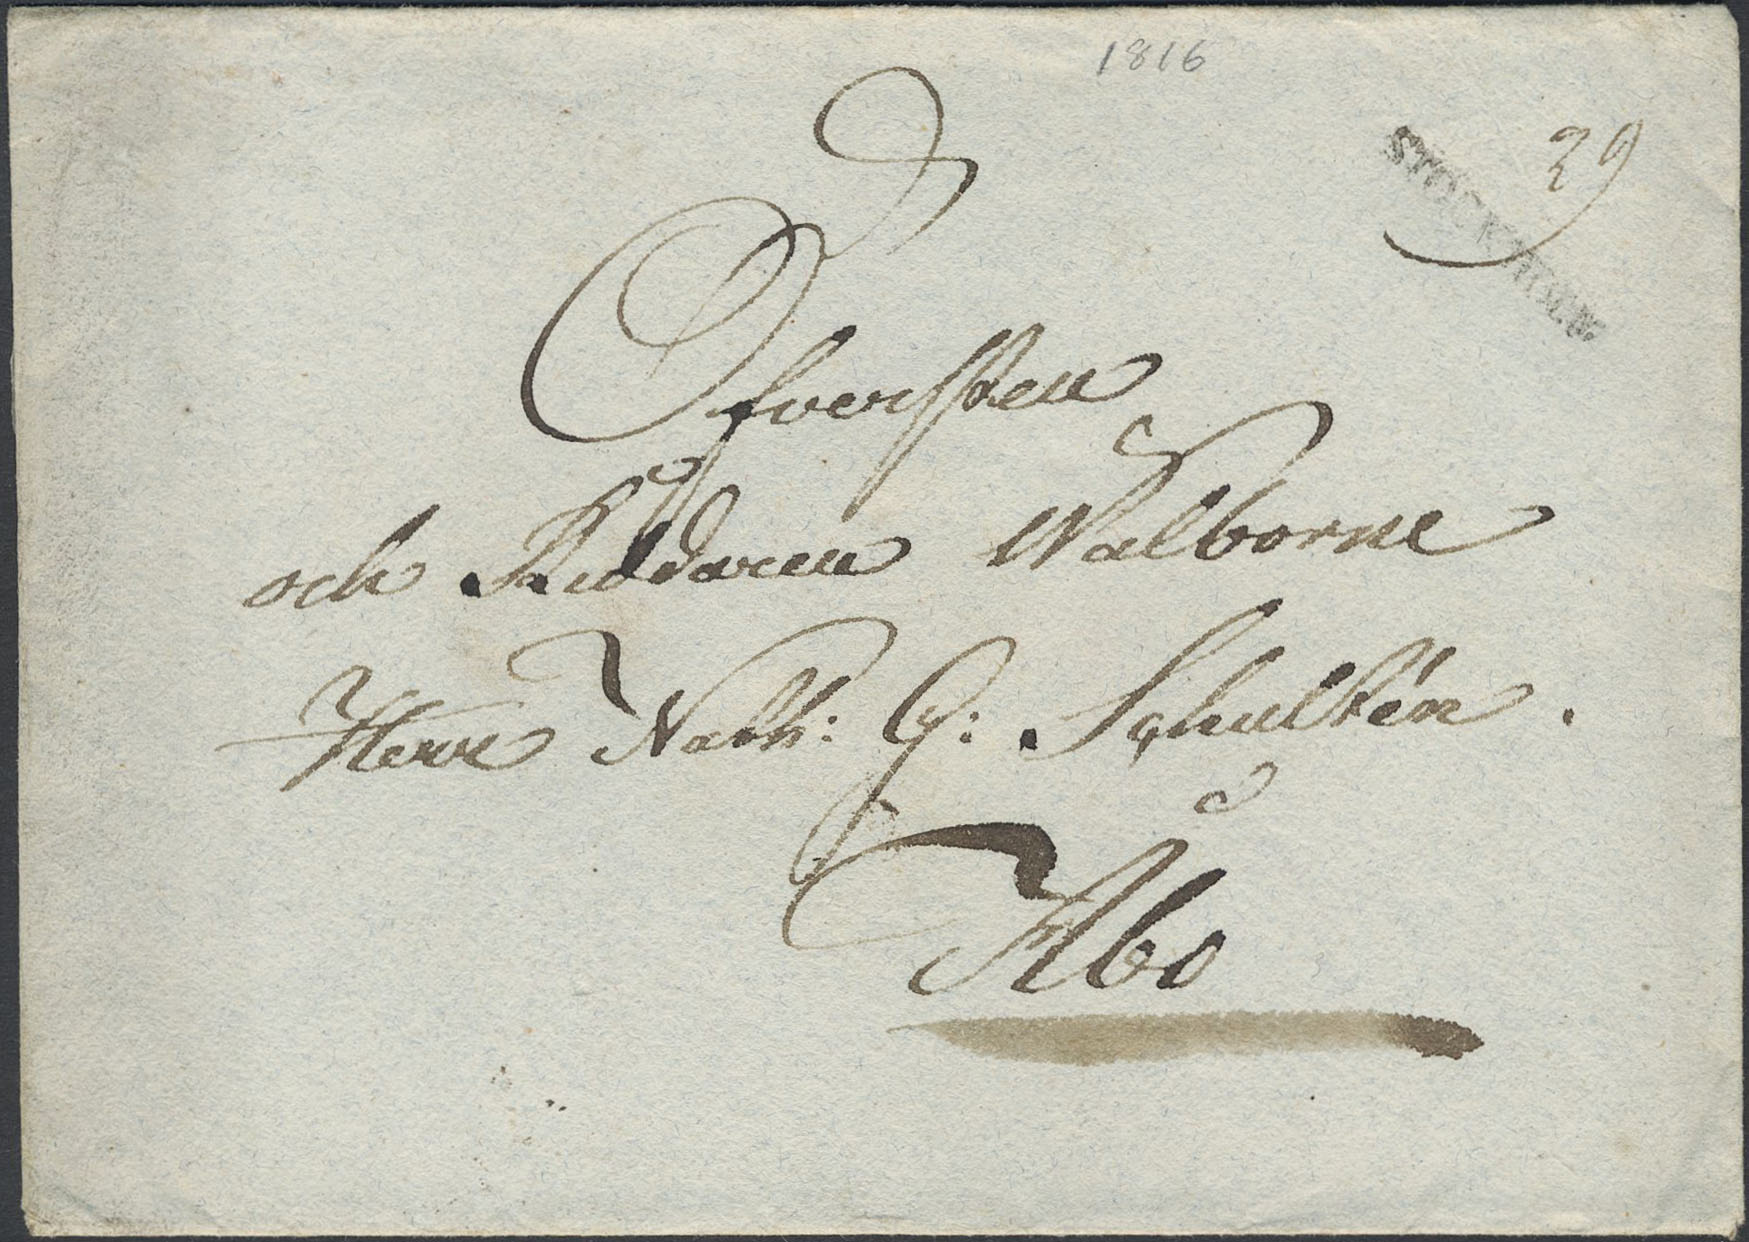 1816
39
STOCKHOLM
Öfversten
och Riddaren Wälborne
Herr Nath: G: Schultén.
Åbo